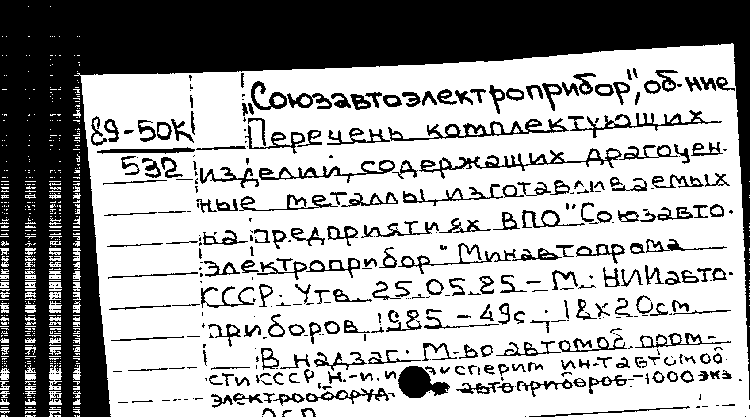 "Союзавтоэлектроприбор", об-ние
89-50К
532
Перечень комплектующих
изделий, содержащих драгоцен-
ные металлы, изготавливаемых
на предприятиях ВПО "Союзавто-
электроприбор" Минавтопрома
СССР: Утв. 25.05.85 - М.: НИИавто-
приборов, 1985 - 49с.; 18х20см.
В надзаг: М-во автомоб. пром-
сти СССР, Н.-и. и эксперим ин-т автомоб
электрооборуд. автоприборов - 1000 экз